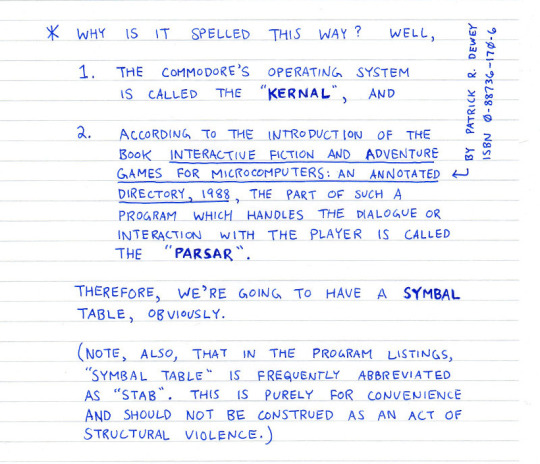 * WHY IS IT SPELLED THIS WAY? WELL,
1. THE COMMODORE'S OPERATING SYSTEM
IS CALLED THE "KERNAL", AND
2. ACCORDING TO THE INTRODUCTION OF THE
BOOK INTERACTIVE FICTION AND ADVENTURE
GAMES FOR MICROCOMPUTERS: AN ANNOTATED
DIRECTORY, 1988, THE PART OF SUCH A
PROGRAM WHICH HANDLES THE DIALOGUE OR
INTERACTION WITH THE PLAYER IS CALLED
THE "PARSAR".
BY PATRICK R. DEWEY
ISBN 0-88736-170-6
THEREFORE, WE'RE GOING TO HAVE A SYMBAL
TABLE, OBVIOUSLY.
(NOTE, ALSO, THAT IN THE PROGRAM LISTINGS,
"SYMBAL TABLE" IS FREQUENTLY ABBREVIATED
AS "STAB". THIS IS PURELY FOR CONVENIENCE
AND SHOULD NOT BE CONSTRUED AS AN ACT OF
STRUCTURAL VIOLENCE.)